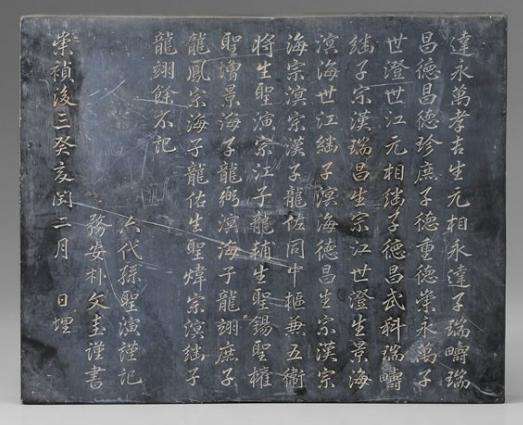 達永萬孝吉生元相永達子瑞疇瑞
昌德昌德珍庶子德重德崇永萬子
世澄世江元相繼子德昌武科瑞疇
繼子宗漢瑞昌生宗江世澄生景海
濵海世江繼子濵海德昌生宗漢宗
海宗濵宗漢子龍佑同中樞兼五衛
將生聖演宗江子龍輔生聖錫聖權
聖澮景海子龍弼濵海子龍翊庶子
龍鳳宗海子龍佑生聖煒宗濵繼子
龍翊餘不記
六代孫聖演謹記
務安朴文圭謹書
崇禎後三癸亥閏二月 日埋